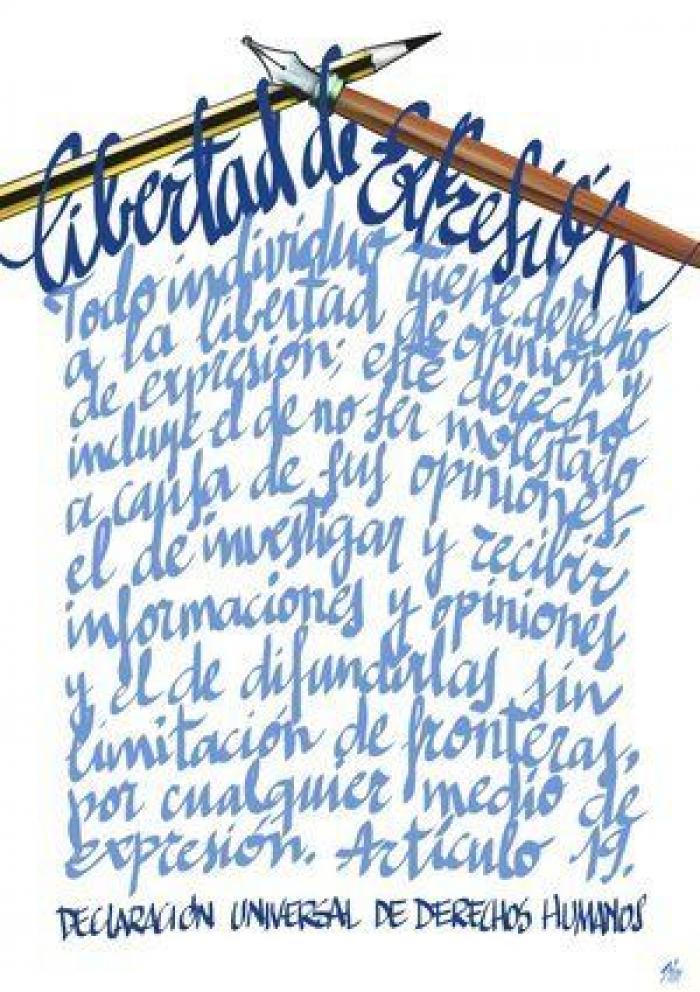 libertad de Expresión
Todo individuo tiene derecho
a la libertad de opinión y
de expresión; este derecho
incluye el de no ser molestado
a causa de sus opiniones,
el de investigar y recibir
informaciones y opiniones
y el de difundirlas sin
limitación de fronteras,
por cualquier medio de
expresión. Artículo 19.
DECLARACIÓN UNIVERSAL DE DERECHOS HUMANOS